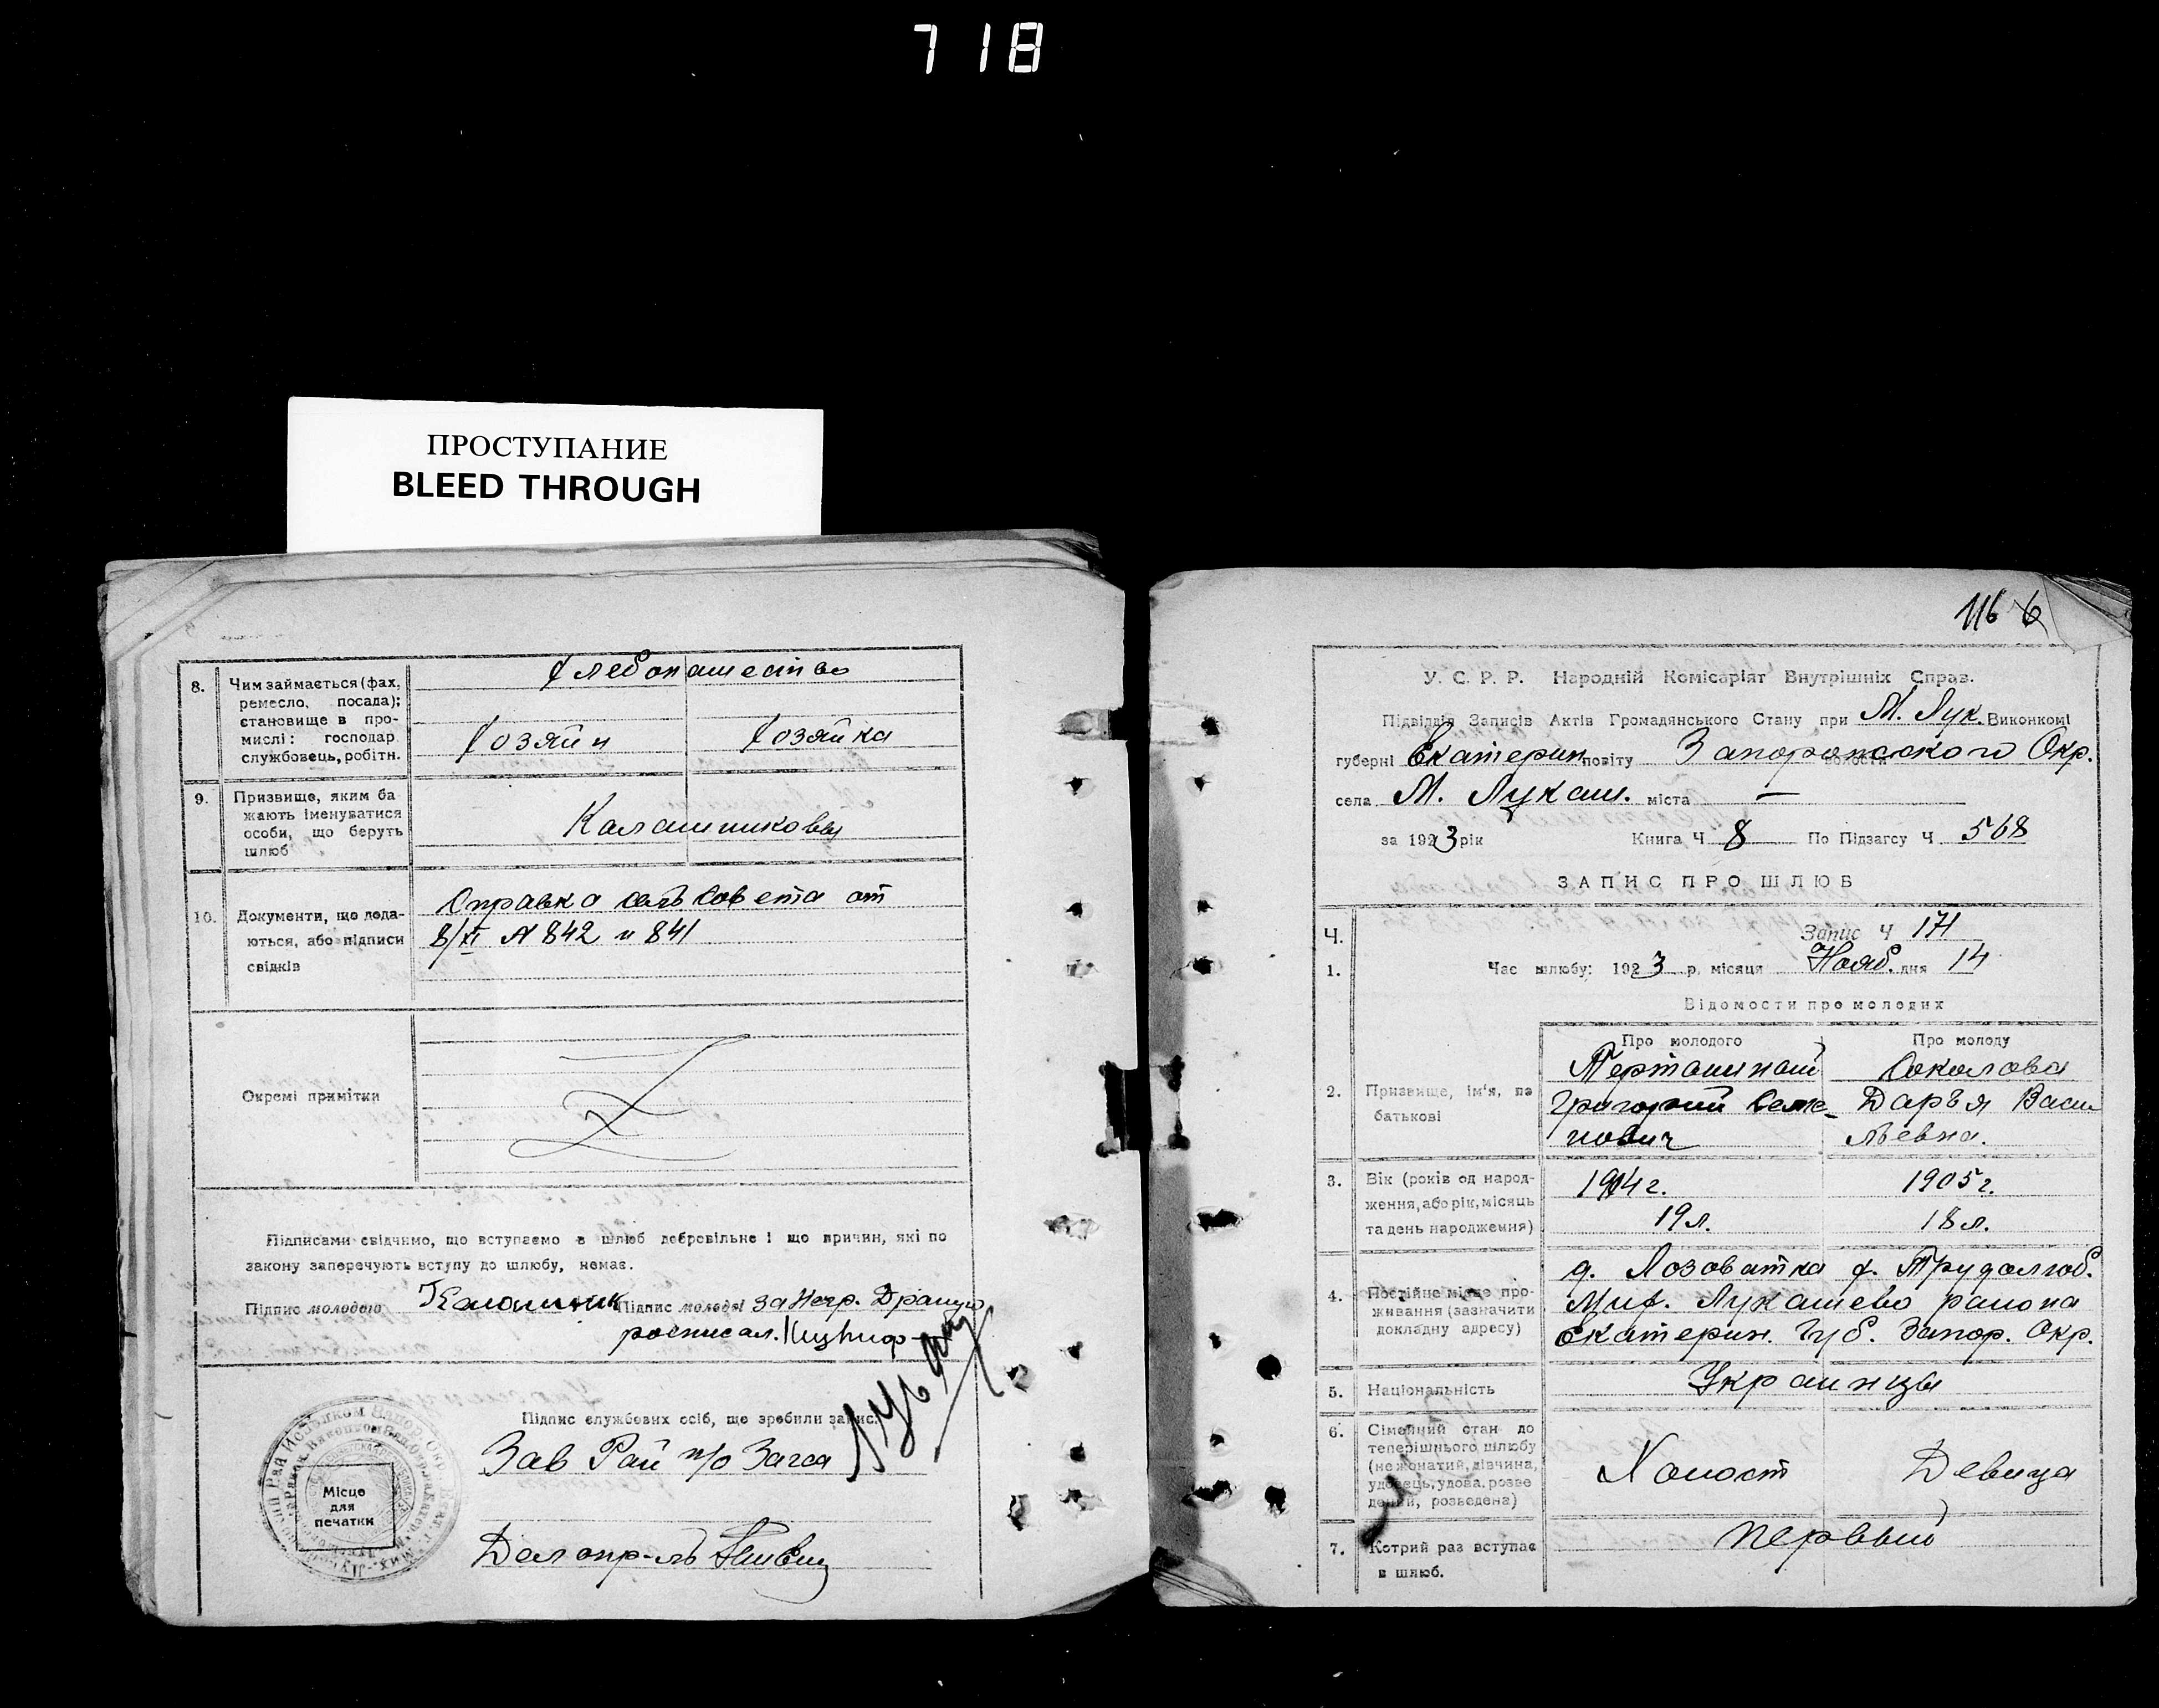 718
ПРОСТУПАНИЕ
BLEED THROUGH
8. Чим займається (фах,
ремесло, посада);
становище в про-
мислі: господар
службовець, робітн.
Хлебопашество
Хозяин Хозяйка
9. Призвище, яким ба
жають іменуватися
особи, що беруть
шлюб
Калашниковы
10. Документи, що дода-
ються, або підписи
свідків
Справка сельсовета от
8/XI N 842 и 841
Окремі примітки
Підписами свідчимо, що вступаємо в шлюб добровільне і що причин, які по
закону заперечують вступу до шлюбу, немає.
Підпис молодого Підпис молодої за негр.
росписал.
Підпис службових осіб, що зробили запис.
Зав Рай п/о Загса
Місце
для
печатки
Делопр-ль
116
У. С. Р. Р. Народній Комісаріят Внутрішніх Справ.
Підвідділ Записів Актів Громадянського Стану при М. Лук. Виконкомі
губерні Екатерин повіту Запорожского Окр.
села М. Лукаш. міста —
за 1923 рік Книга Ч 8 По Підзагсу Ч 568
ЗАПИС ПРО ШЛЮБ
Ч. Запис Ч 171
1. Час шлюбу: 1923 р. місяця Нояб. дня 14
Відомости про молодих
Про молодого Про молоду
2. Призвище, ім'я, по
батькові
Соколова
Григорий Семе-
нович
Дарья Васи
льевна.
3. Вік (років од народ-
ження, або рік, місяць
та день народження)
1904 г. 1905 г.
19 л. 18 л.
4. Постійне місце про-
живання (зазначити
докладну адресу)
д. Лозоватка х. Трудолюб.
Мих. Лукашево района
Екатерин. Губ. Запор. Окр.
5. Національність
Украинцы
6. Сімейний стан до
теперішнього шлюбу
(нежонатий, дівчина,
удовець, удова, розве
дений, розведена)
Холост Девица
7. Котрий раз вступає
в шлюб.
первый